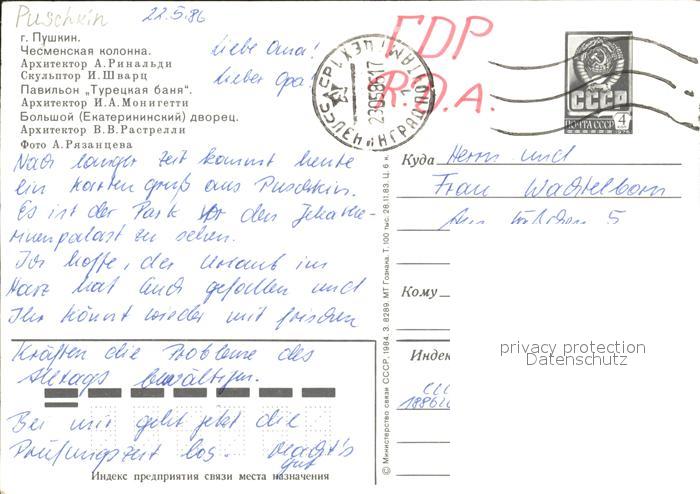 Puschkin 22.5.86
г. Пушкин.
Чесменская колонна.
Архитектор А.Ринальди
Скульптор И.Шварц
Павильон „Турецкая баня“.
Архитектор И.А.Монигетти
Большой (Екатерининский) дворец.
Архитектор В.В.Растрелли
Фото А.Рязанцева
Liebe Oma!
Lieber Opa!
Nach langer Zeit kommt heute
ein Kartengruß aus Puschkin.
Es ist der Park vor den Jekateri-
nenpalast zu sehen.
Ich hoffe, der Urlaub im
Harz hat Euch gefallen und
Ihr könnt wieder mit frischen
Kräften die Probleme des
Alltags bewältigen.
Bei mir geht jetzt die
Prüfungszeit los. Macht's
gut
Индекс предприятия связи места назначения
© Министерство связи СССР, 1984. З. 8289. МТ Гознака. Т. 100 тыс. 28.11.83. Ц. 6 к.
ГДР
R.D.A.
СССР
ПОЧТА СССР 4
Куда Herrn und
Frau Wachtelborn
5
Кому
Индекс
privacy protection
Datenschutz